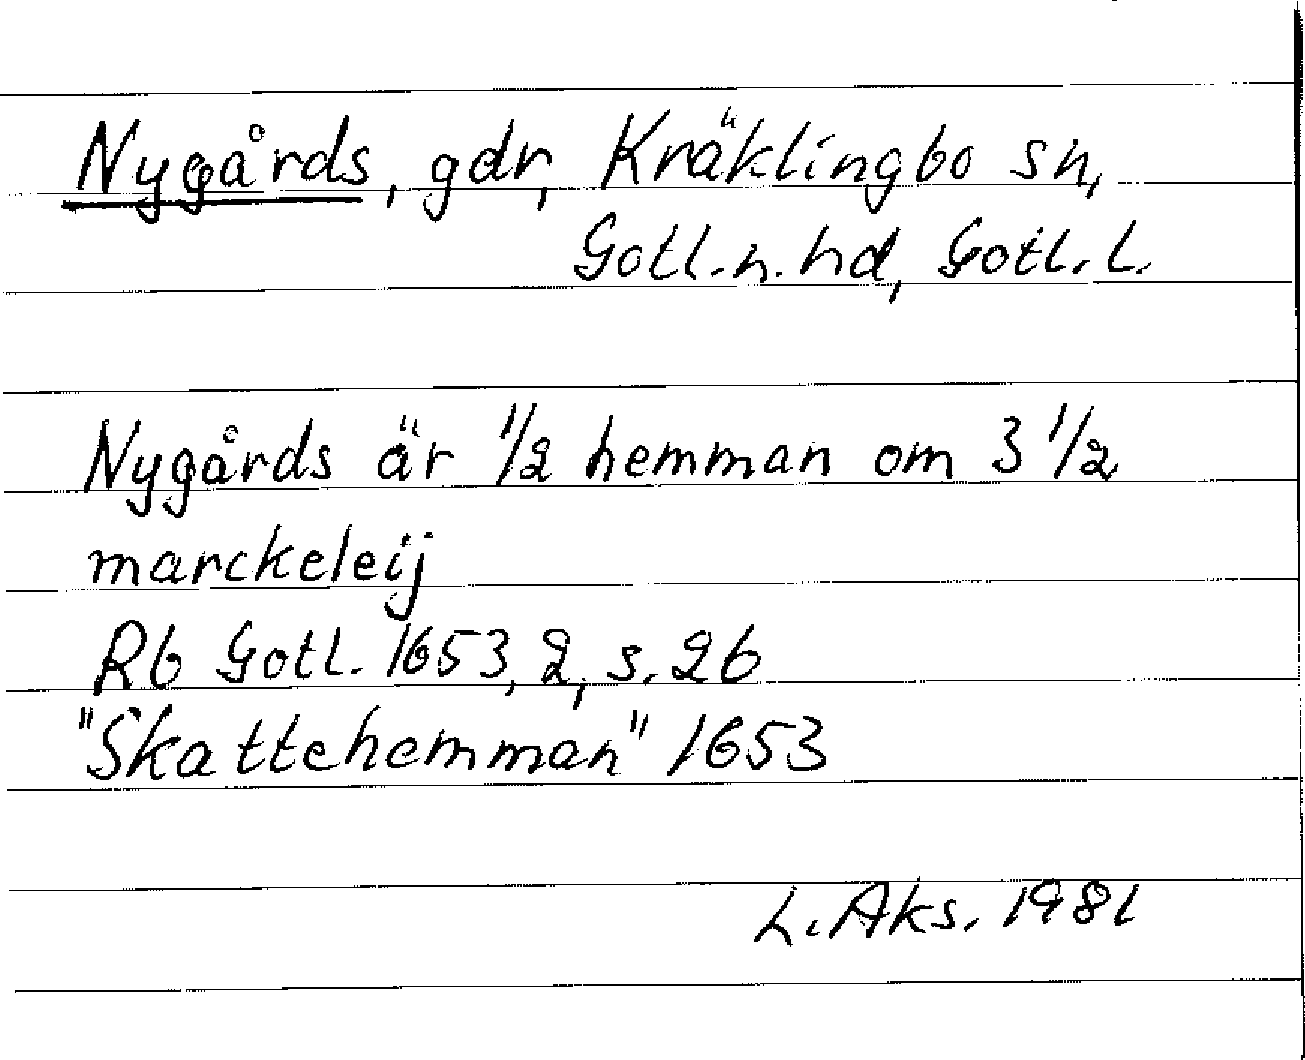 Nygårds, gdr, Kräklingbo sn,
Gotl. n. hd, Gotl. L.
Nygårds är 1/2 hemman om 3 1/2
marckeleij
Rb Gotl. 1653, 2, s. 26
"Skattehemman" 1653
L. Aks. 1981